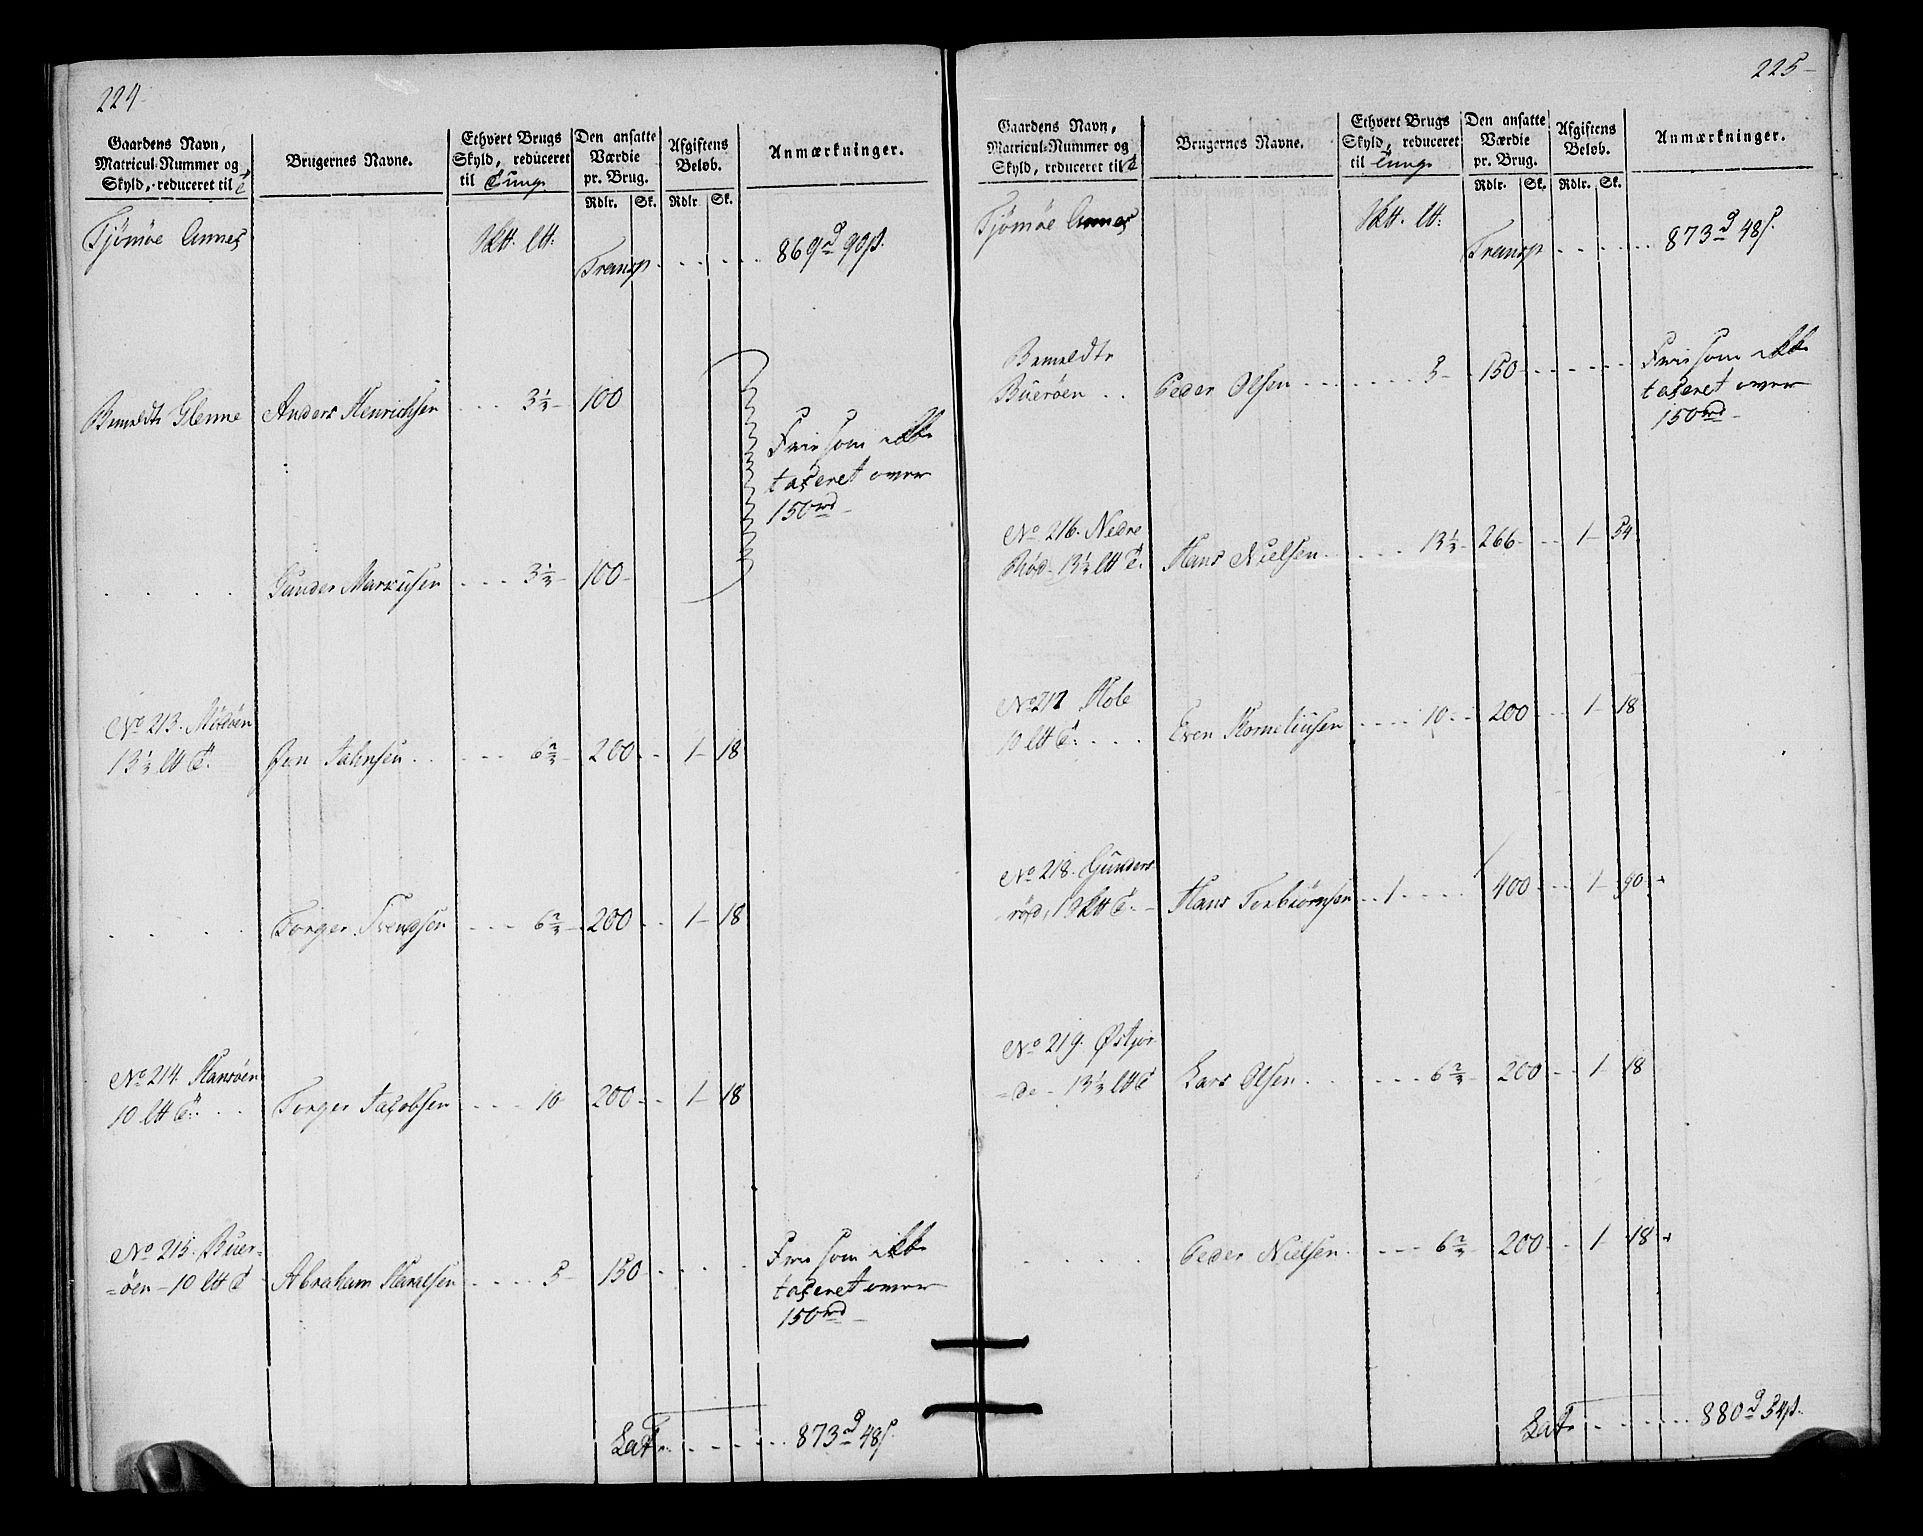 224
Gaardens Navn,
Matricul-Nummer og
Skyld, reduceret til T
Brugernes Navne.
Ethvert Brugs
Skyld, reduceret
til Tunge
Den ansatte
Værdie
pr. Brug.
Rdlr. Sk.
Afgiftens
Beløb.
Rdlr Sk.
Anmærkninger.
Tjømøe Annex
Sktt. ltt:
Transp . . . . . 869 d 90 s.
Bemeldte Glenne Anders Henrichsen . . . 3 1/3 100
Frie som ikke
taxeret over
150 rd
. . . . Gunder Marcusen . . . 3 1/3 100
No 213. Mågøen
13 1/3 ltt T. Jahnsen . . . . 6 2/3 200 . . 1 18
. . . . Torger Svendsen . . . 6 2/3 200 . . 1 18
No 214. Hansøen
10 ltt T. . . Torger Jacobsen . . . 10 200 . . 1 18
No 215. Buer=
=øen - 10 ltt T Abraham Haraldsen . . . . 5 150 . . . .
Frie som ikke
taxeret over
150 rd
Lat . . . . . . 873 d 48 s.
225
Gaardens Navn,
Matricul-Nummer og
Skyld, reduceret til T
Brugernes Navne.
Ethvert Brugs
Skyld, reduceret
til Tunge
Den ansatte
Værdie
pr. Brug.
Rdlr. Sk.
Afgiftens
Beløb.
Rdlr. Sk.
Anmærkninger.
Tjømøe Annex
Sktt. ltt:
Transp . . . . . 873 d 48 s.
Bemeldte
Buerøen . . Peder Olsen . . . . . . . 5 150 . . . . . .
Frie som ikke
taxeret over
150 rd
No 216. Nedre
Røød 13 1/3 ltt T. Hans Nielsen . . . . . 13 1/3 266 . . 1 54
No 217 Hole
10 ltt T: . . . Even Korneliusen . . . . 10 . . 200 . . 1 18
No 218. Gunders
røød, 1 Sktt T. Hans Torbiørnsen . . 1 . . . . 400 . . 1 90
No 219. Østjor
=de - 13 1/3 ltt T Lars Olsen . . . . . . 6 2/3 200 . . 1 18
. . . . Peder Nielsen . . . . 6 2/3 200 . . 1 18
Lat . . . . . . 880 d 34 s.